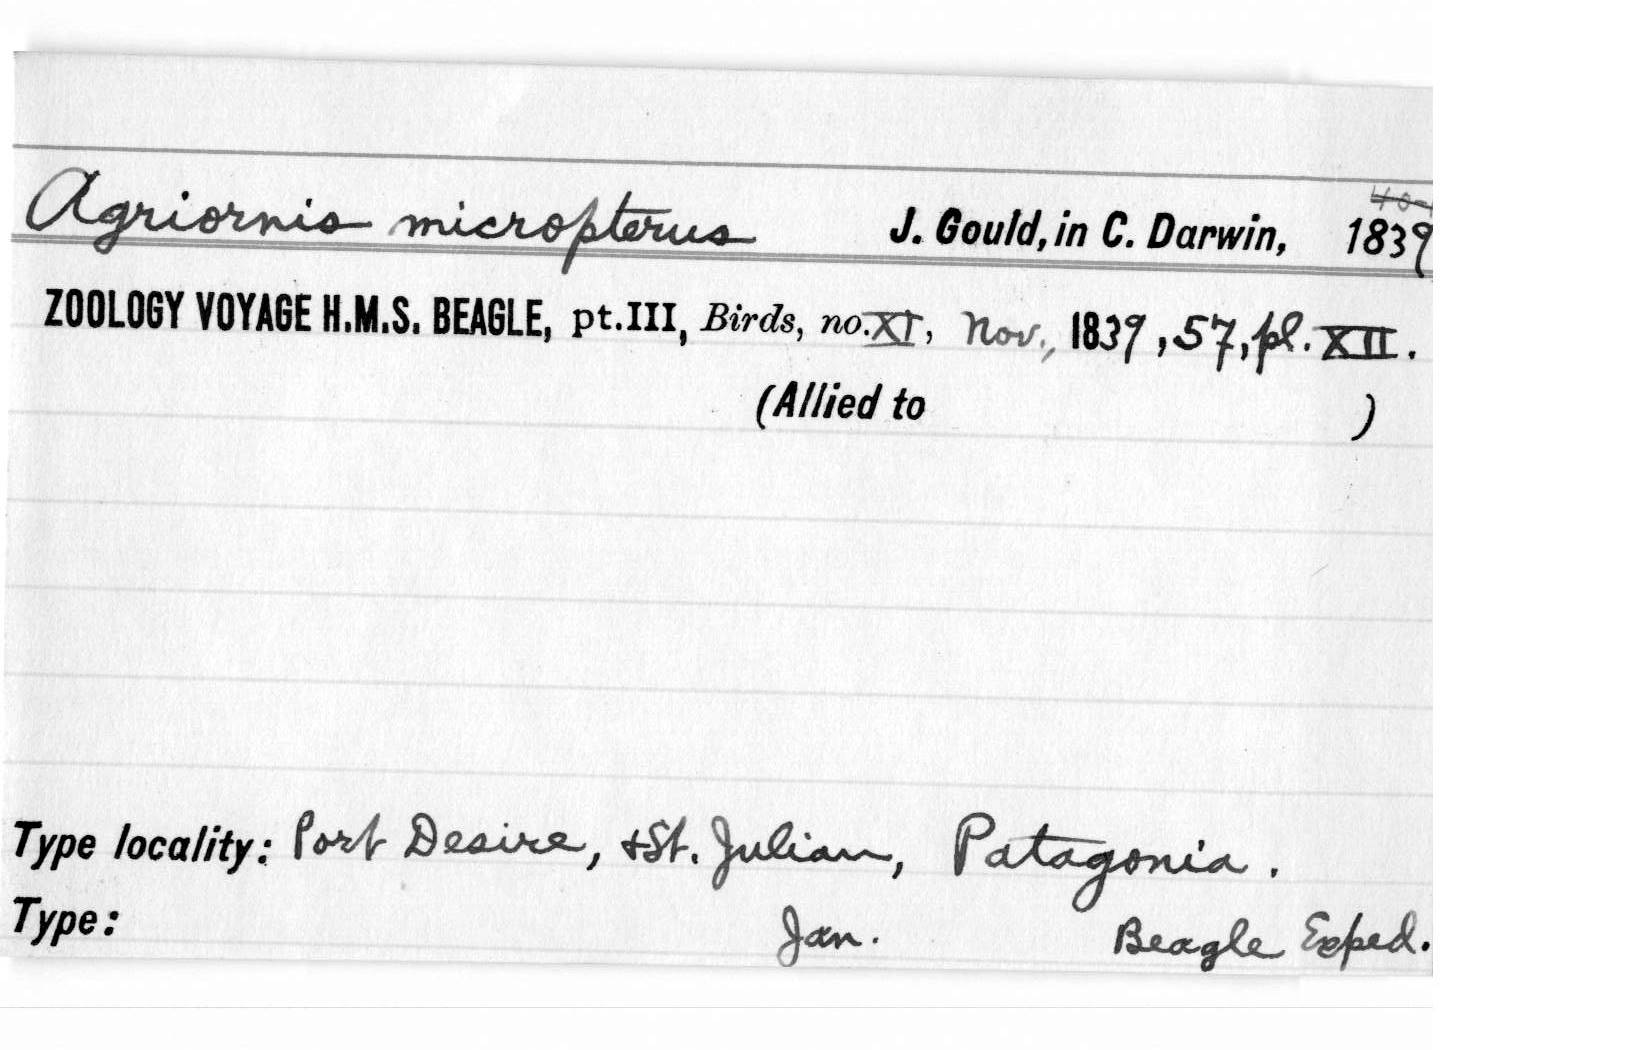 Agriornis micropterus J. Gould, in C. Darwin, 1839
ZOOLOGY VOYAGE H.M.S. BEAGLE, pt.III, Birds, no.XI, Nov., 1839, 57, pl. XII.
(Allied to )
Type locality: Port Desire, +St. Julian, Patagonia.
Type: Jan. Beagle Exped.